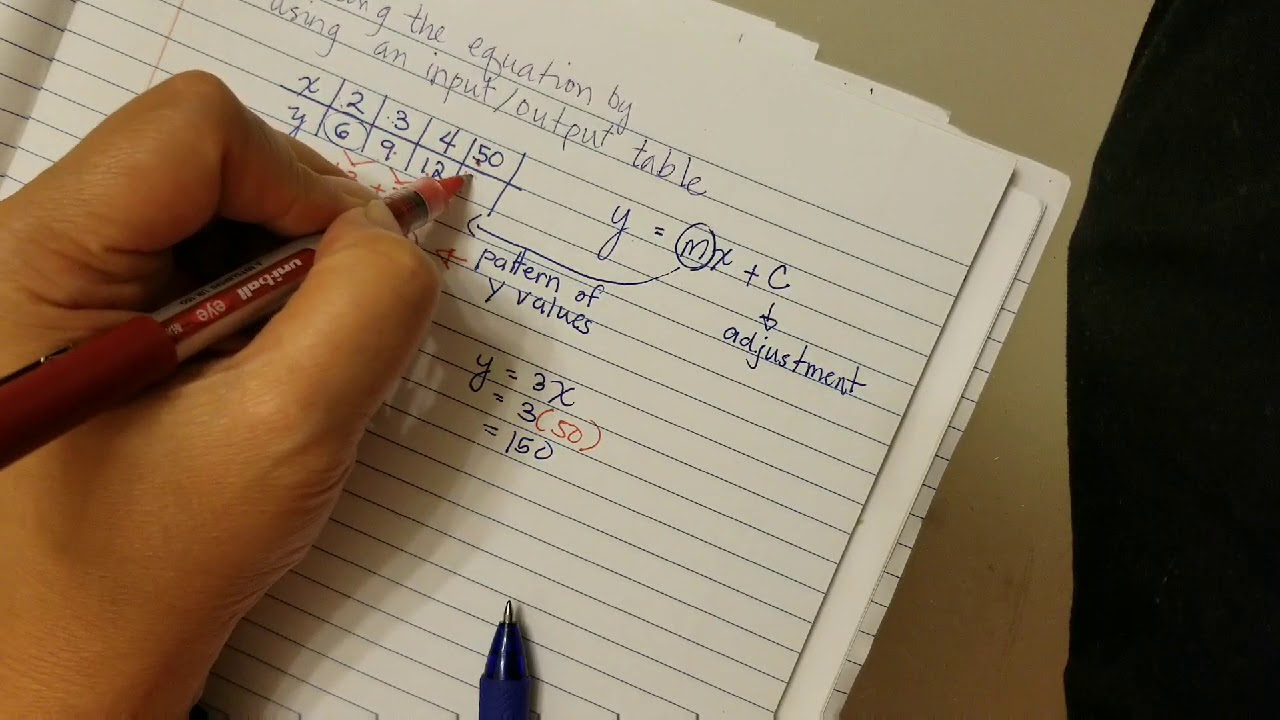 the equation by
using an input/output table
x 2 3 4 50
y 6 9 12
y = mx + c
pattern of
y values
adjustment
y = 3x
= 3(50)
= 150
uni-ball eye